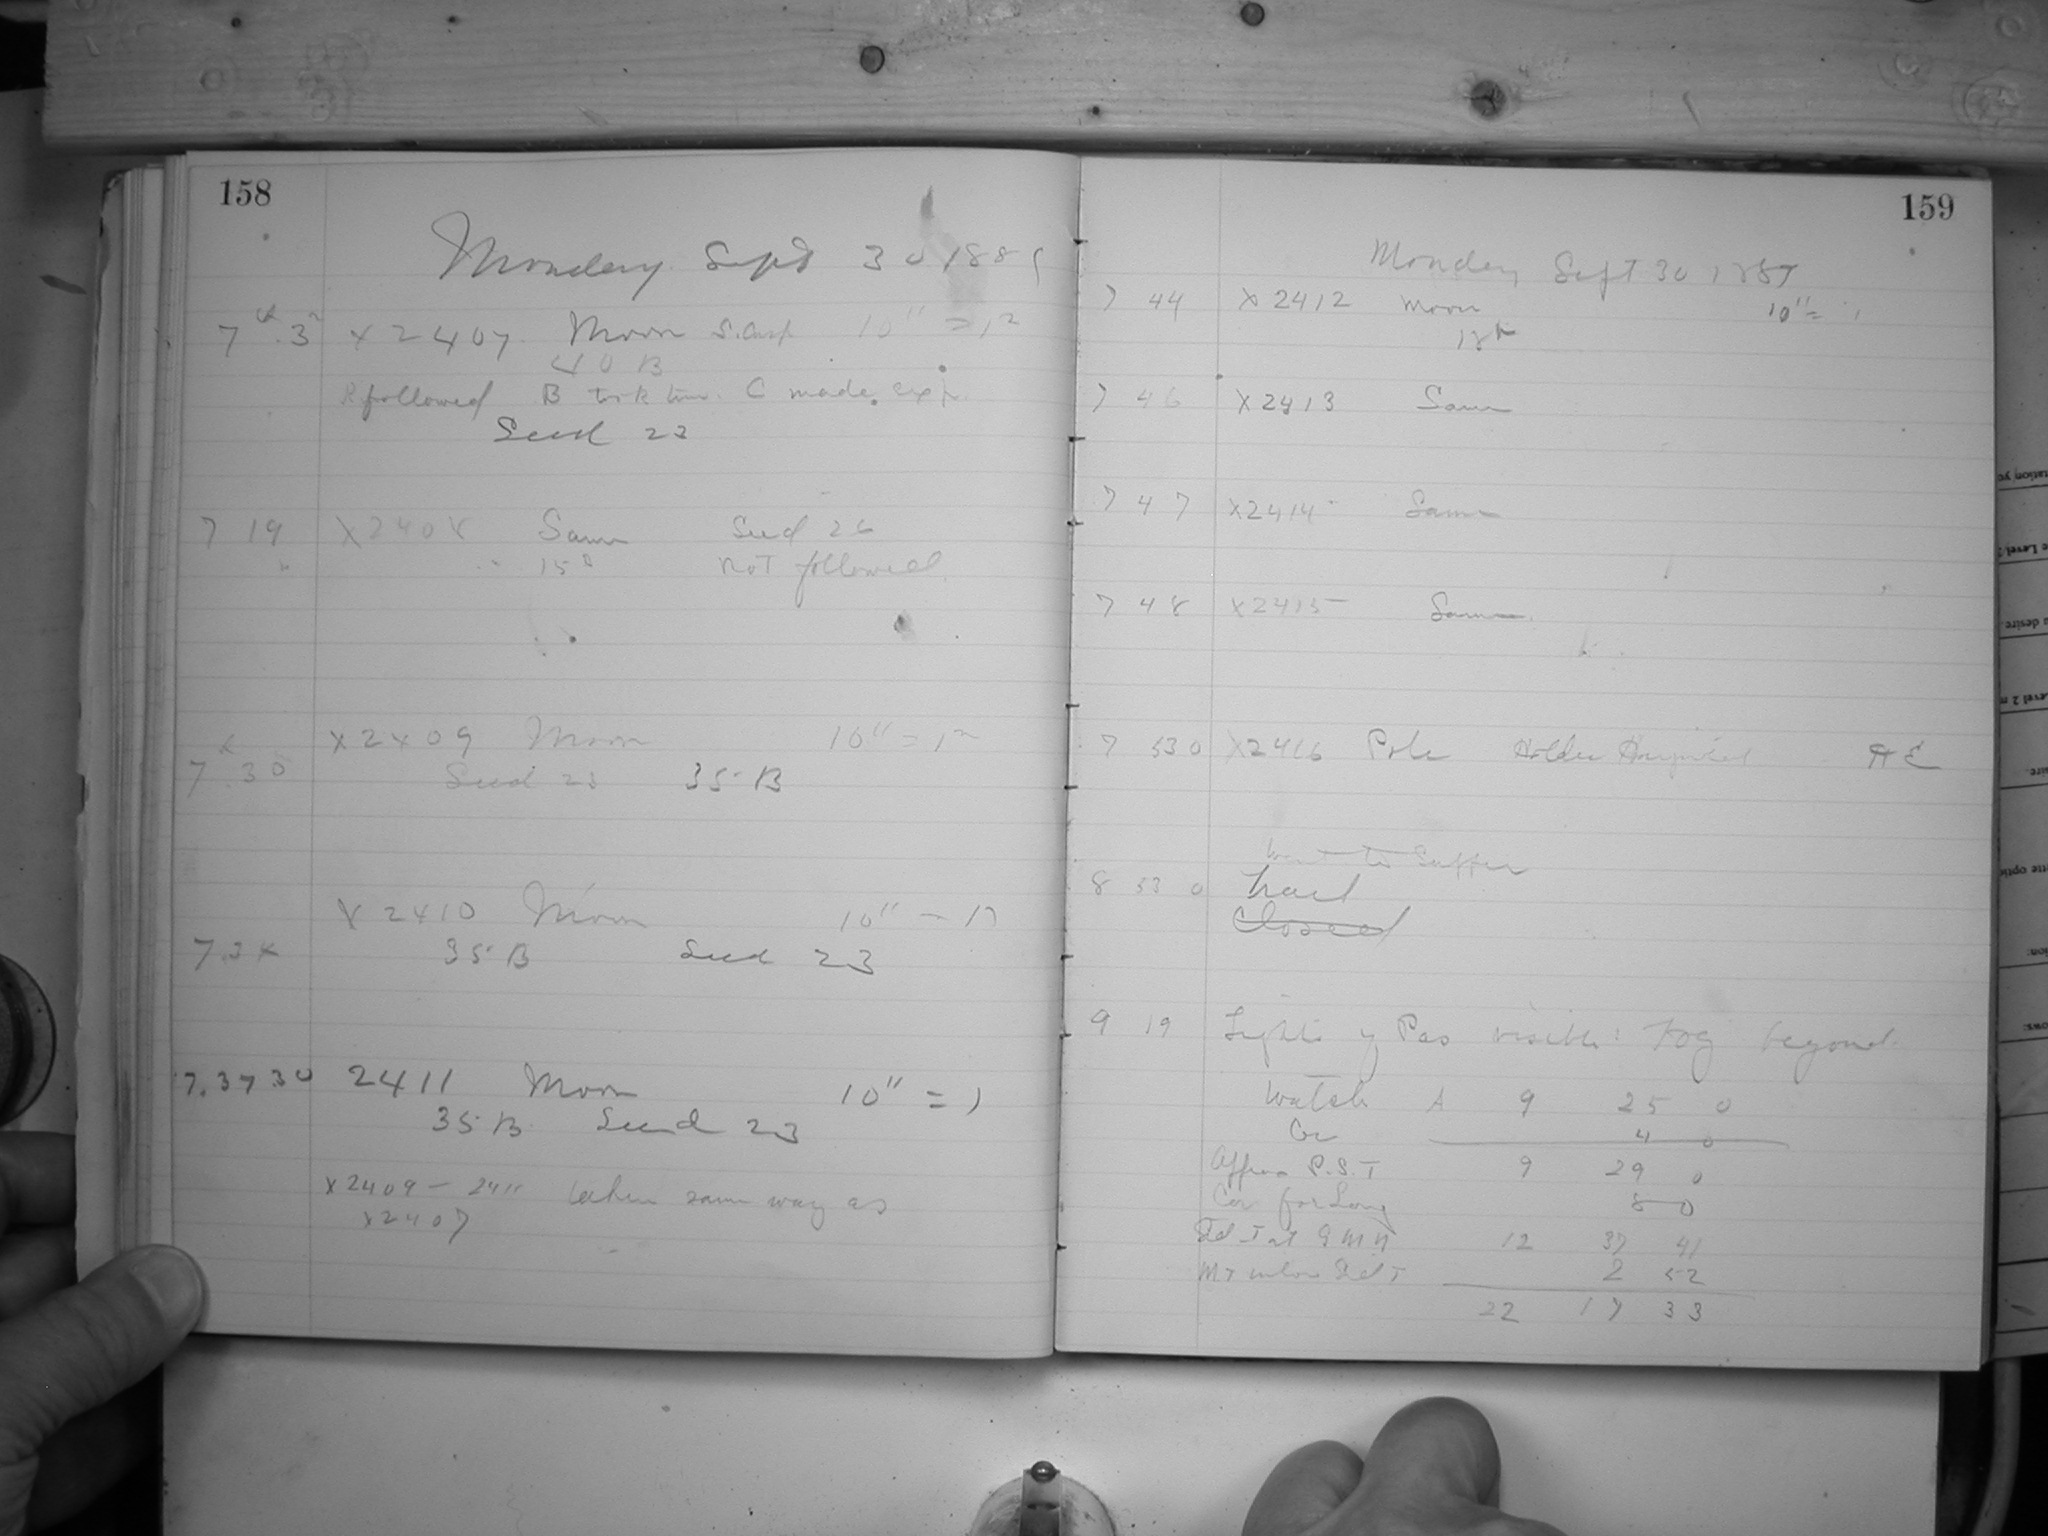 158
Monday Sept 30 1889
7 3 X2407 Moon S. Cusp 10" = 1
40 B
R followed B took time. C made exp.
Seed 23
7 19 X2408 Same Seed 26
15 Not followed
X2409 Moon 10" = 1
7.30 Seed 23 35 B
X2410 Moon 10" = 1
7.34 35 B Seed 23
7.37 30 2411 Moon 10" = 1
35 B Seed 23
X2409 – 2411 taken same way as
X2407
159
Monday Sept 30 1889
7 44 X2412 Moon 10" =
7 46 X2413 Same
7 47 X2414 Same
7 48 X2415 Same
7 53 0 X2416 Pole Holder
went to Supper
8 53 0
Closed
9 19 Lights of Pas visible: Fog beyond.
Watch A 9 25 0
Cor 4 0
P.S.T 9 29 0
Cor for Long 8 0
Sid T at G M N 12 37 41
MT into Sid T 2 52
22 17 33